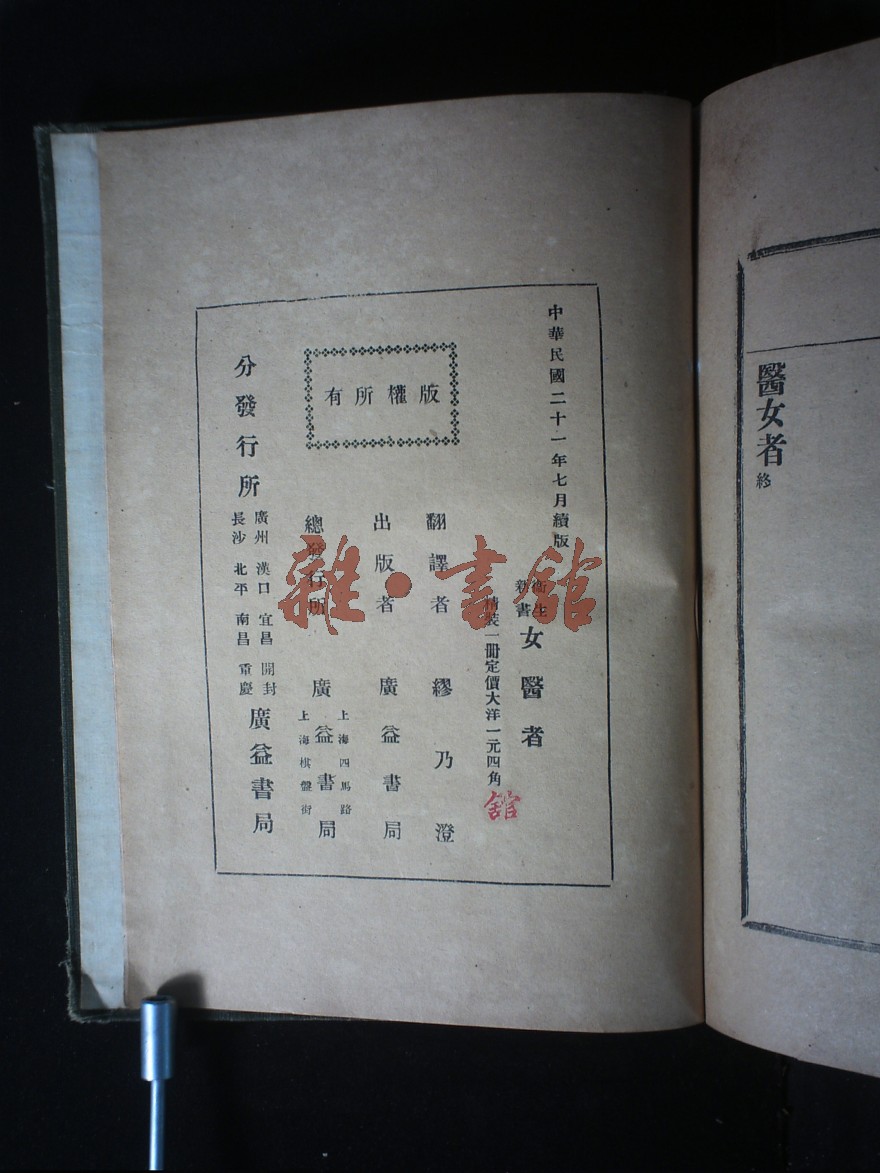 醫女者 終
中華民國二十一年七月續版
衞生新書 女醫者
精裝一冊定價大洋一元四角
館
翻譯者 繆乃澄
版權所有
出版者 廣益書局
總發行所 廣益書局
上海四馬路
上海棋盤街
分發行所
廣州 漢口 宜昌 開封
長沙 北平 南昌 重慶
廣益書局
雜·書館